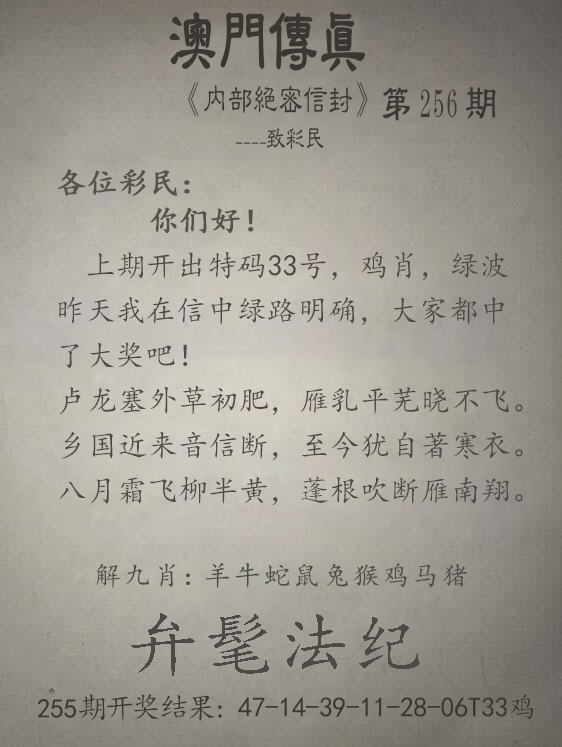 澳門傳眞
《内部絕密信封》第256期
----致彩民
各位彩民：
你们好！
上期开出特码33号，鸡肖，绿波
昨天我在信中绿路明确，大家都中
了大奖吧！
卢龙塞外草初肥，雁乳平芜晓不飞。
乡国近来音信断，至今犹自著寒衣。
八月霜飞柳半黄，蓬根吹断雁南翔。
解九肖：羊牛蛇鼠兔猴鸡马猪
弁髦法纪
255期开奖结果：47-14-39-11-28-06T33鸡